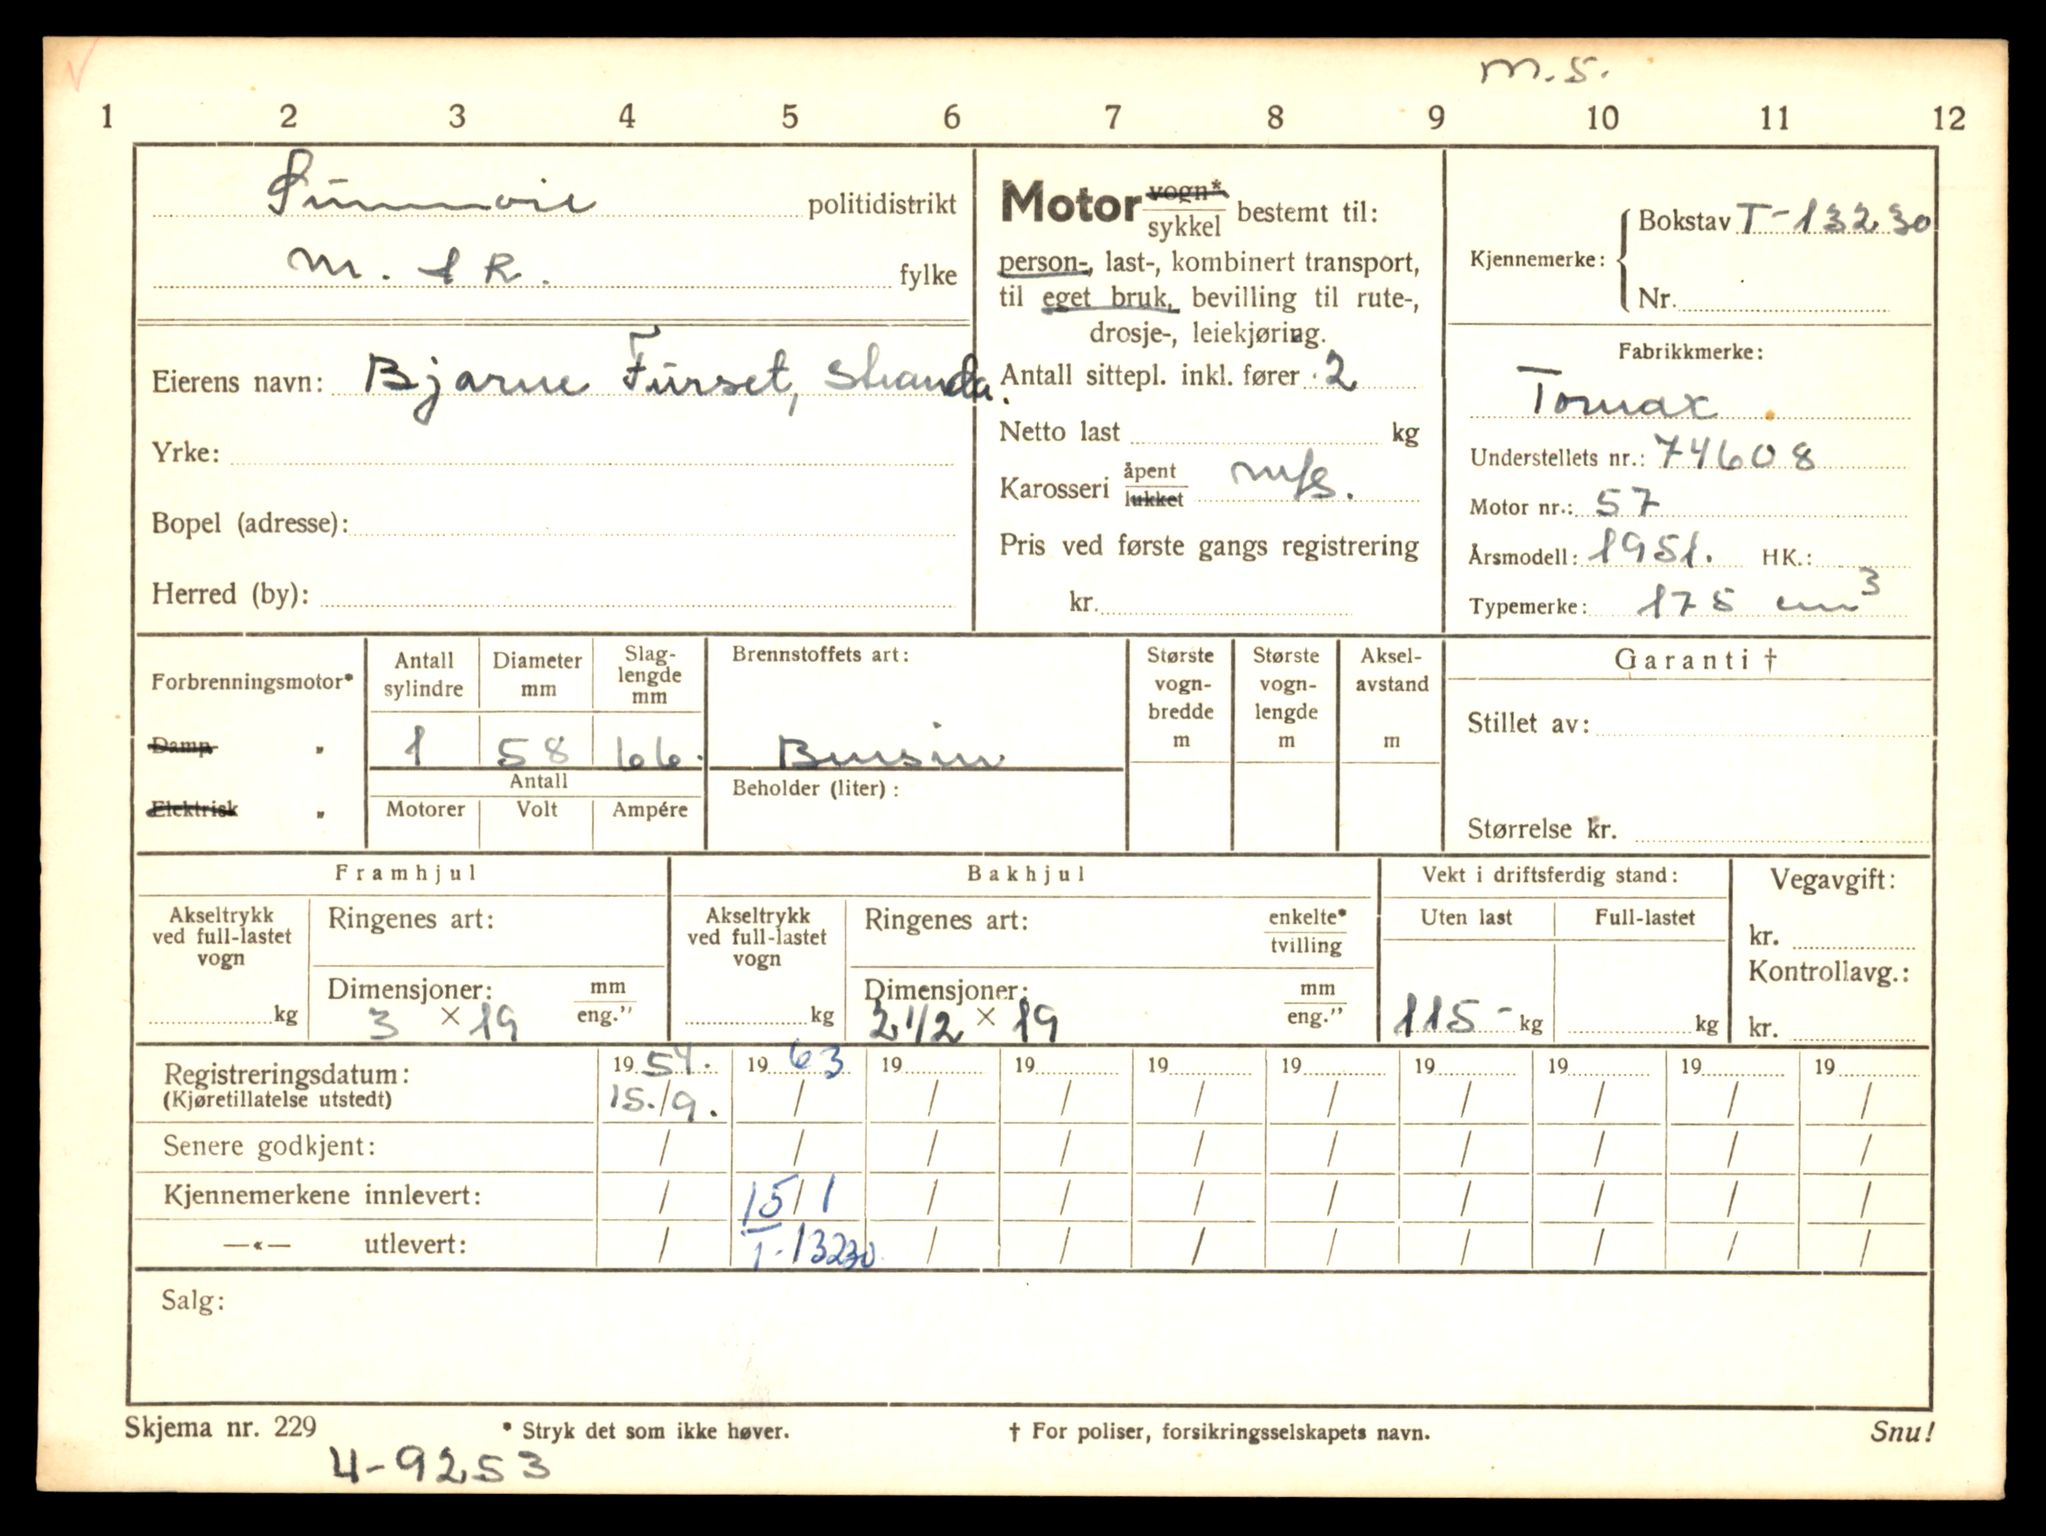 m.s.
1 2 3 4 5 6 7 8 9 10 11 12
Sunnmøre politidistrikt
M. & R. fylke
Eierens navn: Bjarne Furset, Stranda.
Yrke:
Bopel (adresse):
Herred (by):
Motor vogn* / sykkel bestemt til:
person-, last-, kombinert transport,
til eget bruk, bevilling til rute-,
drosje-, leiekjøring.
Antall sittepl. inkl. fører 2
Netto last kg
Karosseri åpent / lukket m/s.
Pris ved første gangs registrering
kr.
Kjennemerke: Bokstav T-13230
Nr.
Fabrikkmerke:
Tornax
Understellets nr.: 74608
Motor nr.: 57
Årsmodell: 1951. HK.:
Typemerke: 175 cm³
Forbrenningsmotor*
Damp "
Elektrisk "
Antall sylindre Diameter mm Slag-lengde mm
1 58 66.
Antall
Motorer Volt Ampére
Brennstoffets art:
Bensin
Beholder (liter) :
Største vogn-bredde m
Største vogn-lengde m
Aksel-avstand m
Garanti †
Stillet av:
Størrelse kr.
Framhjul
Akseltrykk ved full-lastet vogn
kg
Ringenes art:
Dimensjoner: mm / eng."
3 × 19
Bakhjul
Akseltrykk ved full-lastet vogn
kg
Ringenes art: enkelte* / tvilling
Dimensjoner: mm / eng."
2 1/2 × 19
Vekt i driftsferdig stand:
Uten last Full-lastet
115- kg kg
Vegavgift:
kr.
Kontrollavg.:
kr.
Registreringsdatum: 1954. 1963 19 19 19 19 19 19 19 19
(Kjøretillatelse utstedt) 15./9. / / / / / / / / /
Senere godkjent: / / / / / / / / / /
Kjennemerkene innlevert: / 15/1 / / / / / / / /
—«— utlevert: / T-13230 / / / / / / / /
Salg:
Skjema nr. 229 * Stryk det som ikke høver. † For poliser, forsikringsselskapets navn. Snu!
U-9253